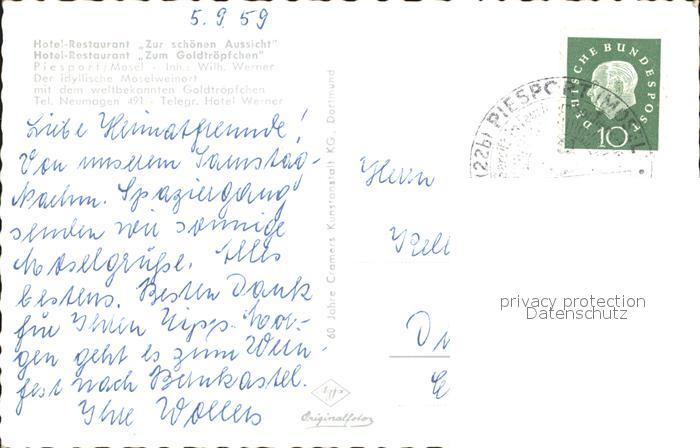 5. 9. 59
Hotel-Restaurant „Zur schönen Aussicht"
Hotel-Restaurant „Zum Goldtröpfchen"
Piesport/Mosel - Inh.: Wilh. Werner
Der idyllische Moselweinort
mit dem weltbekannten Goldtröpfchen
Tel. Neumagen 491 - Telegr. Hotel Werner
Liebe Heimatfreunde!
Von unserem Samstag-
Nachm. Spaziergang
senden wir sonnige
Moselgrüße. Alles
bestens. Besten Dank
für Ihren Tipp. Mor-
gen geht es zum Wein-
fest nach Bernkastel.
Ihre
60 Jahre Cramers Kunstanstalt KG., Dortmund
Originalfoto
DEUTSCHE BUNDESPOST
10
(22b) PIESPORT (MOSEL
Herrn
privacy protection
Datenschutz